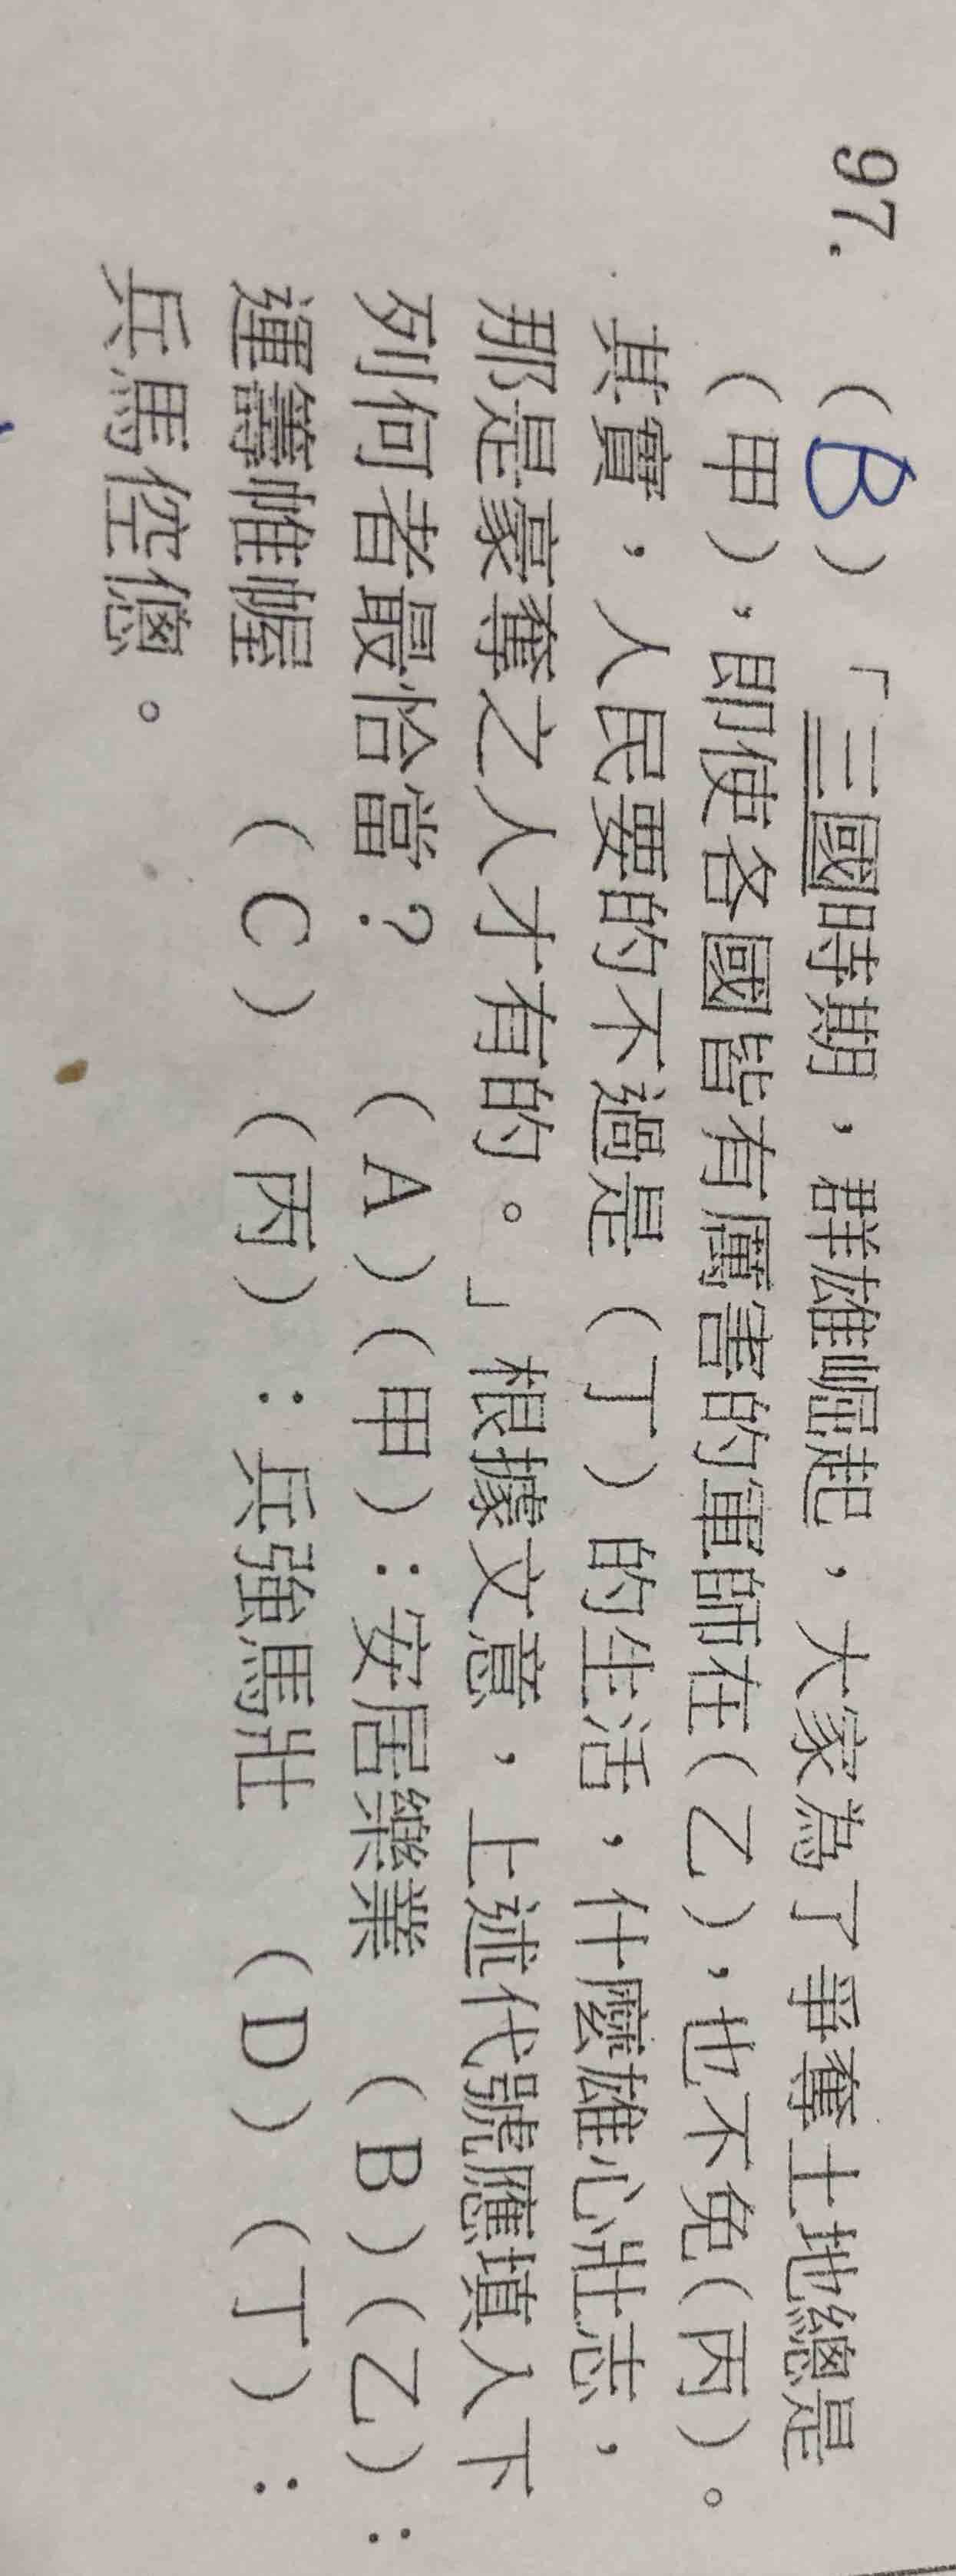 97. （B）「三國時期，群雄崛起，大家為了爭奪土地總是
（甲），即使各國皆有厲害的軍師在（乙），也不免（丙）。
其實，人民要的不過是（丁）的生活，什麼雄心壯志，
那是豪奪之人才有的。」根據文意，上述代號應填入下
列何者最恰當？　（A）（甲）：安居樂業　（B）（乙）：
運籌帷幄　（C）（丙）：兵強馬壯　（D）（丁）：
兵馬倥傯。